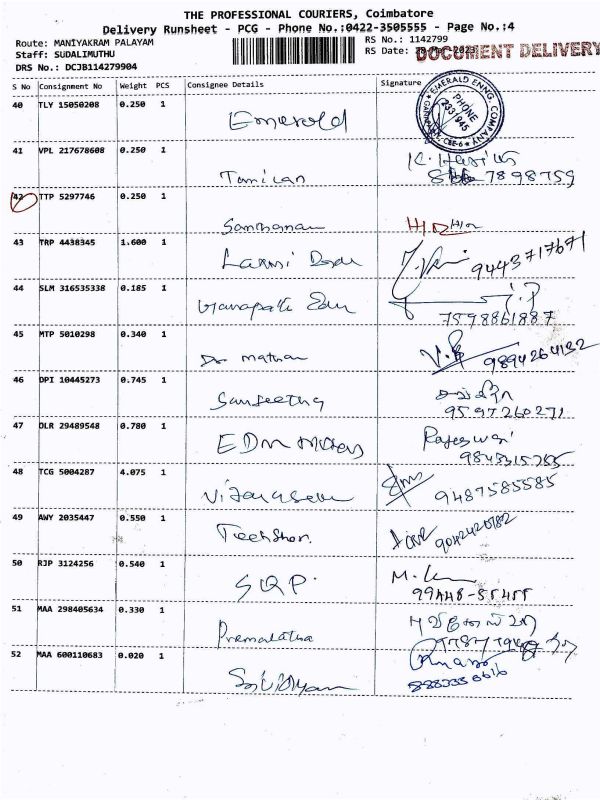 THE PROFESSIONAL COURIERS, Coimbatore
Delivery Runsheet - PCG - Phone No.:0422-3505555 - Page No.:4
Route: MANIYAKRAM PALAYAM
RS No.: 1142799
Staff: SUDALIMUTHU
RS Date:
DOCUMENT DELIVERY
DRS No.: DCJB114279904
S No Consignment No Weight PCS Consignee Details Signature
40 TLY 15050208 0.250 1 Emerald
EMERALD ENNG. COMPANY
PHONE
2331945
CBE-6
41 VPL 217678608 0.250 1 Tamilan
7898759
42 TTP 5297746 0.250 1 Santhanam
43 TRP 4438345 1.600 1 Laxmi
9443717671
44 SLM 316535338 0.185 1 Ganapathi
7598861887
45 MTP 5010298 0.340 1 Dr mathan
9894264132
46 DPI 10445273 0.745 1 Sangeetha
9597260271
47 DLR 29489548 0.780 1 EDM Rajeswari
48 TCG 5004287 4.075 1
9487585585
49 AWY 2035447 0.550 1
9042420182
50 RJP 3124256 0.540 1 SRP. M.
99448-55455
51 MAA 298405634 0.330 1 Premalatha
52 MAA 600110683 0.020 1